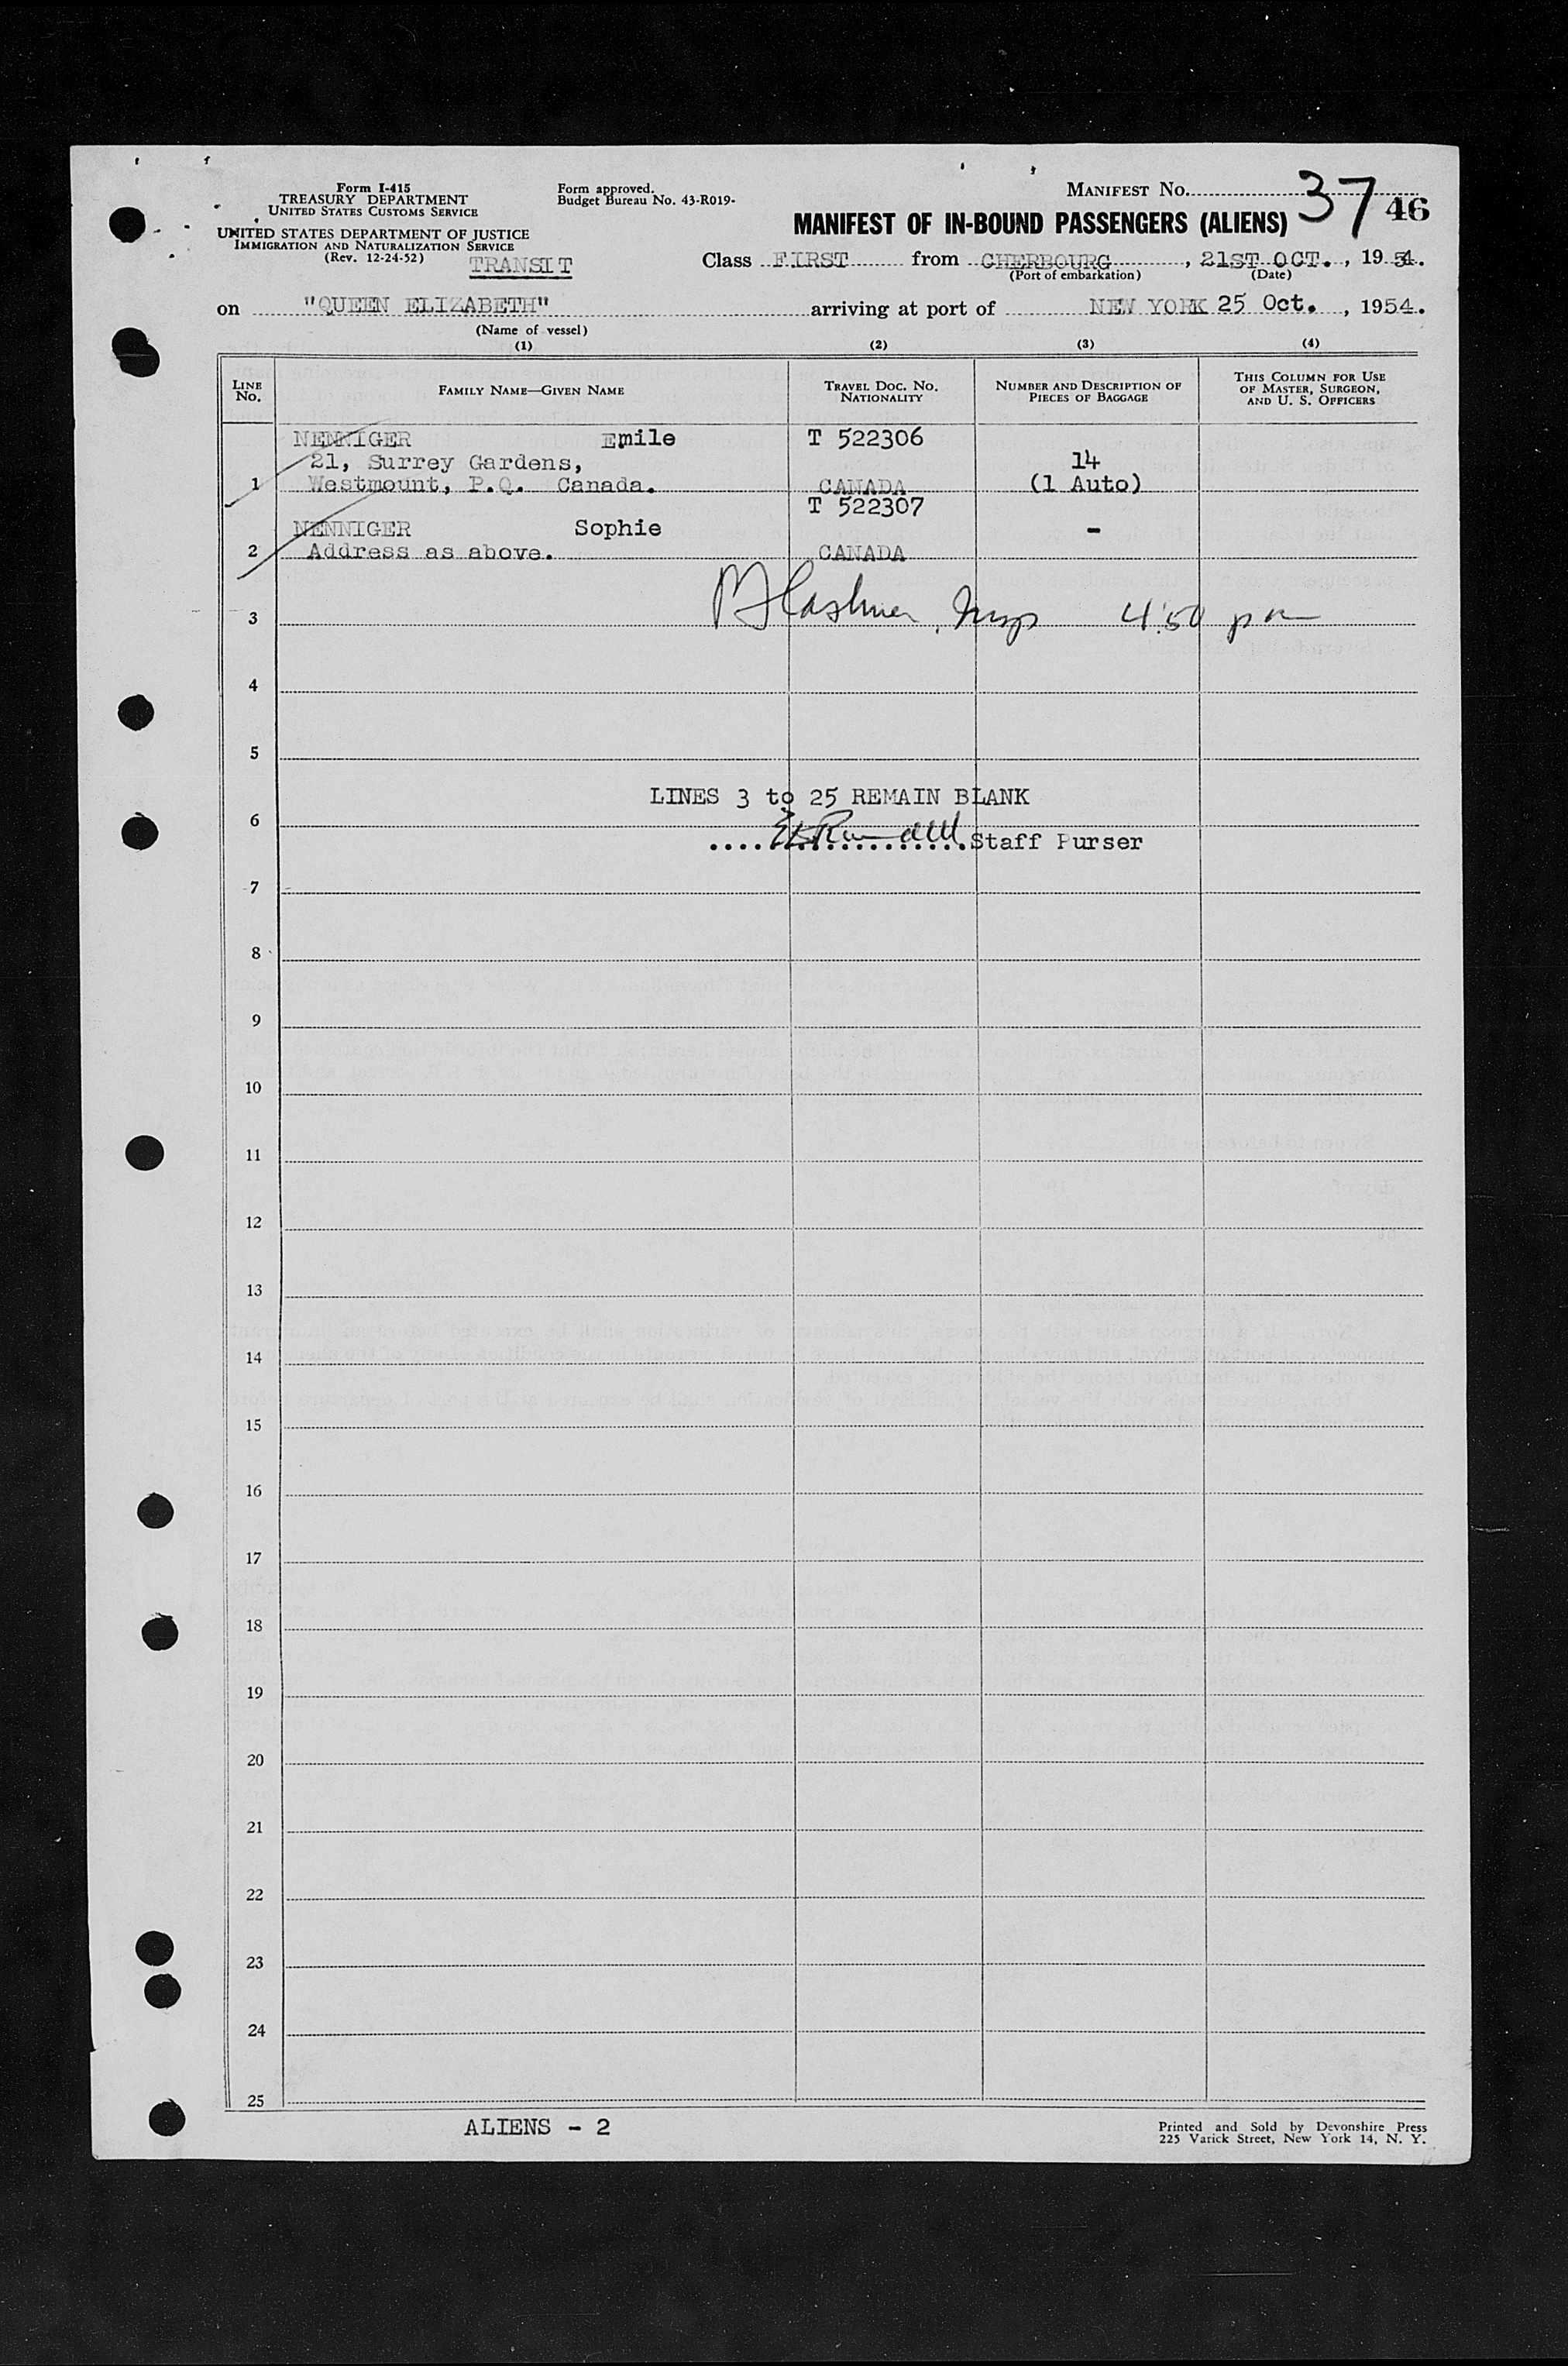 Form I-415
TREASURY DEPARTMENT
UNITED STATES CUSTOMS SERVICE
UNITED STATES DEPARTMENT OF JUSTICE
IMMIGRATION AND NATURALIZATION SERVICE
(Rev. 12-24-52)
TRANSIT
Form approved.
Budget Bureau No. 43-R019-
MANIFEST NO. 37 46
MANIFEST OF IN-BOUND PASSENGERS (ALIENS)
Class FIRST from CHERBOURG, 21ST OCT., 1954.
(Port of embarkation) (Date)
on "QUEEN ELIZABETH" arriving at port of NEW YORK 25 Oct., 1954.
(Name of vessel)
(1) (2) (3) (4)
LINE NO. FAMILY NAME—GIVEN NAME TRAVEL DOC. NO. NATIONALITY NUMBER AND DESCRIPTION OF PIECES OF BAGGAGE THIS COLUMN FOR USE OF MASTER, SURGEON, AND U. S. OFFICERS
NENNIGER Emile T 522306
21, Surrey Gardens, 14
1 Westmount, P.Q. Canada. CANADA (1 Auto)
T 522307
NENNIGER Sophie -
2 Address as above. CANADA
3 4:50 pm
4
5
LINES 3 to 25 REMAIN BLANK
6
Staff Purser
7
8
9
10
11
12
13
14
15
16
17
18
19
20
21
22
23
24
25
ALIENS - 2
Printed and Sold by Devonshire Press
225 Varick Street, New York 14, N. Y.